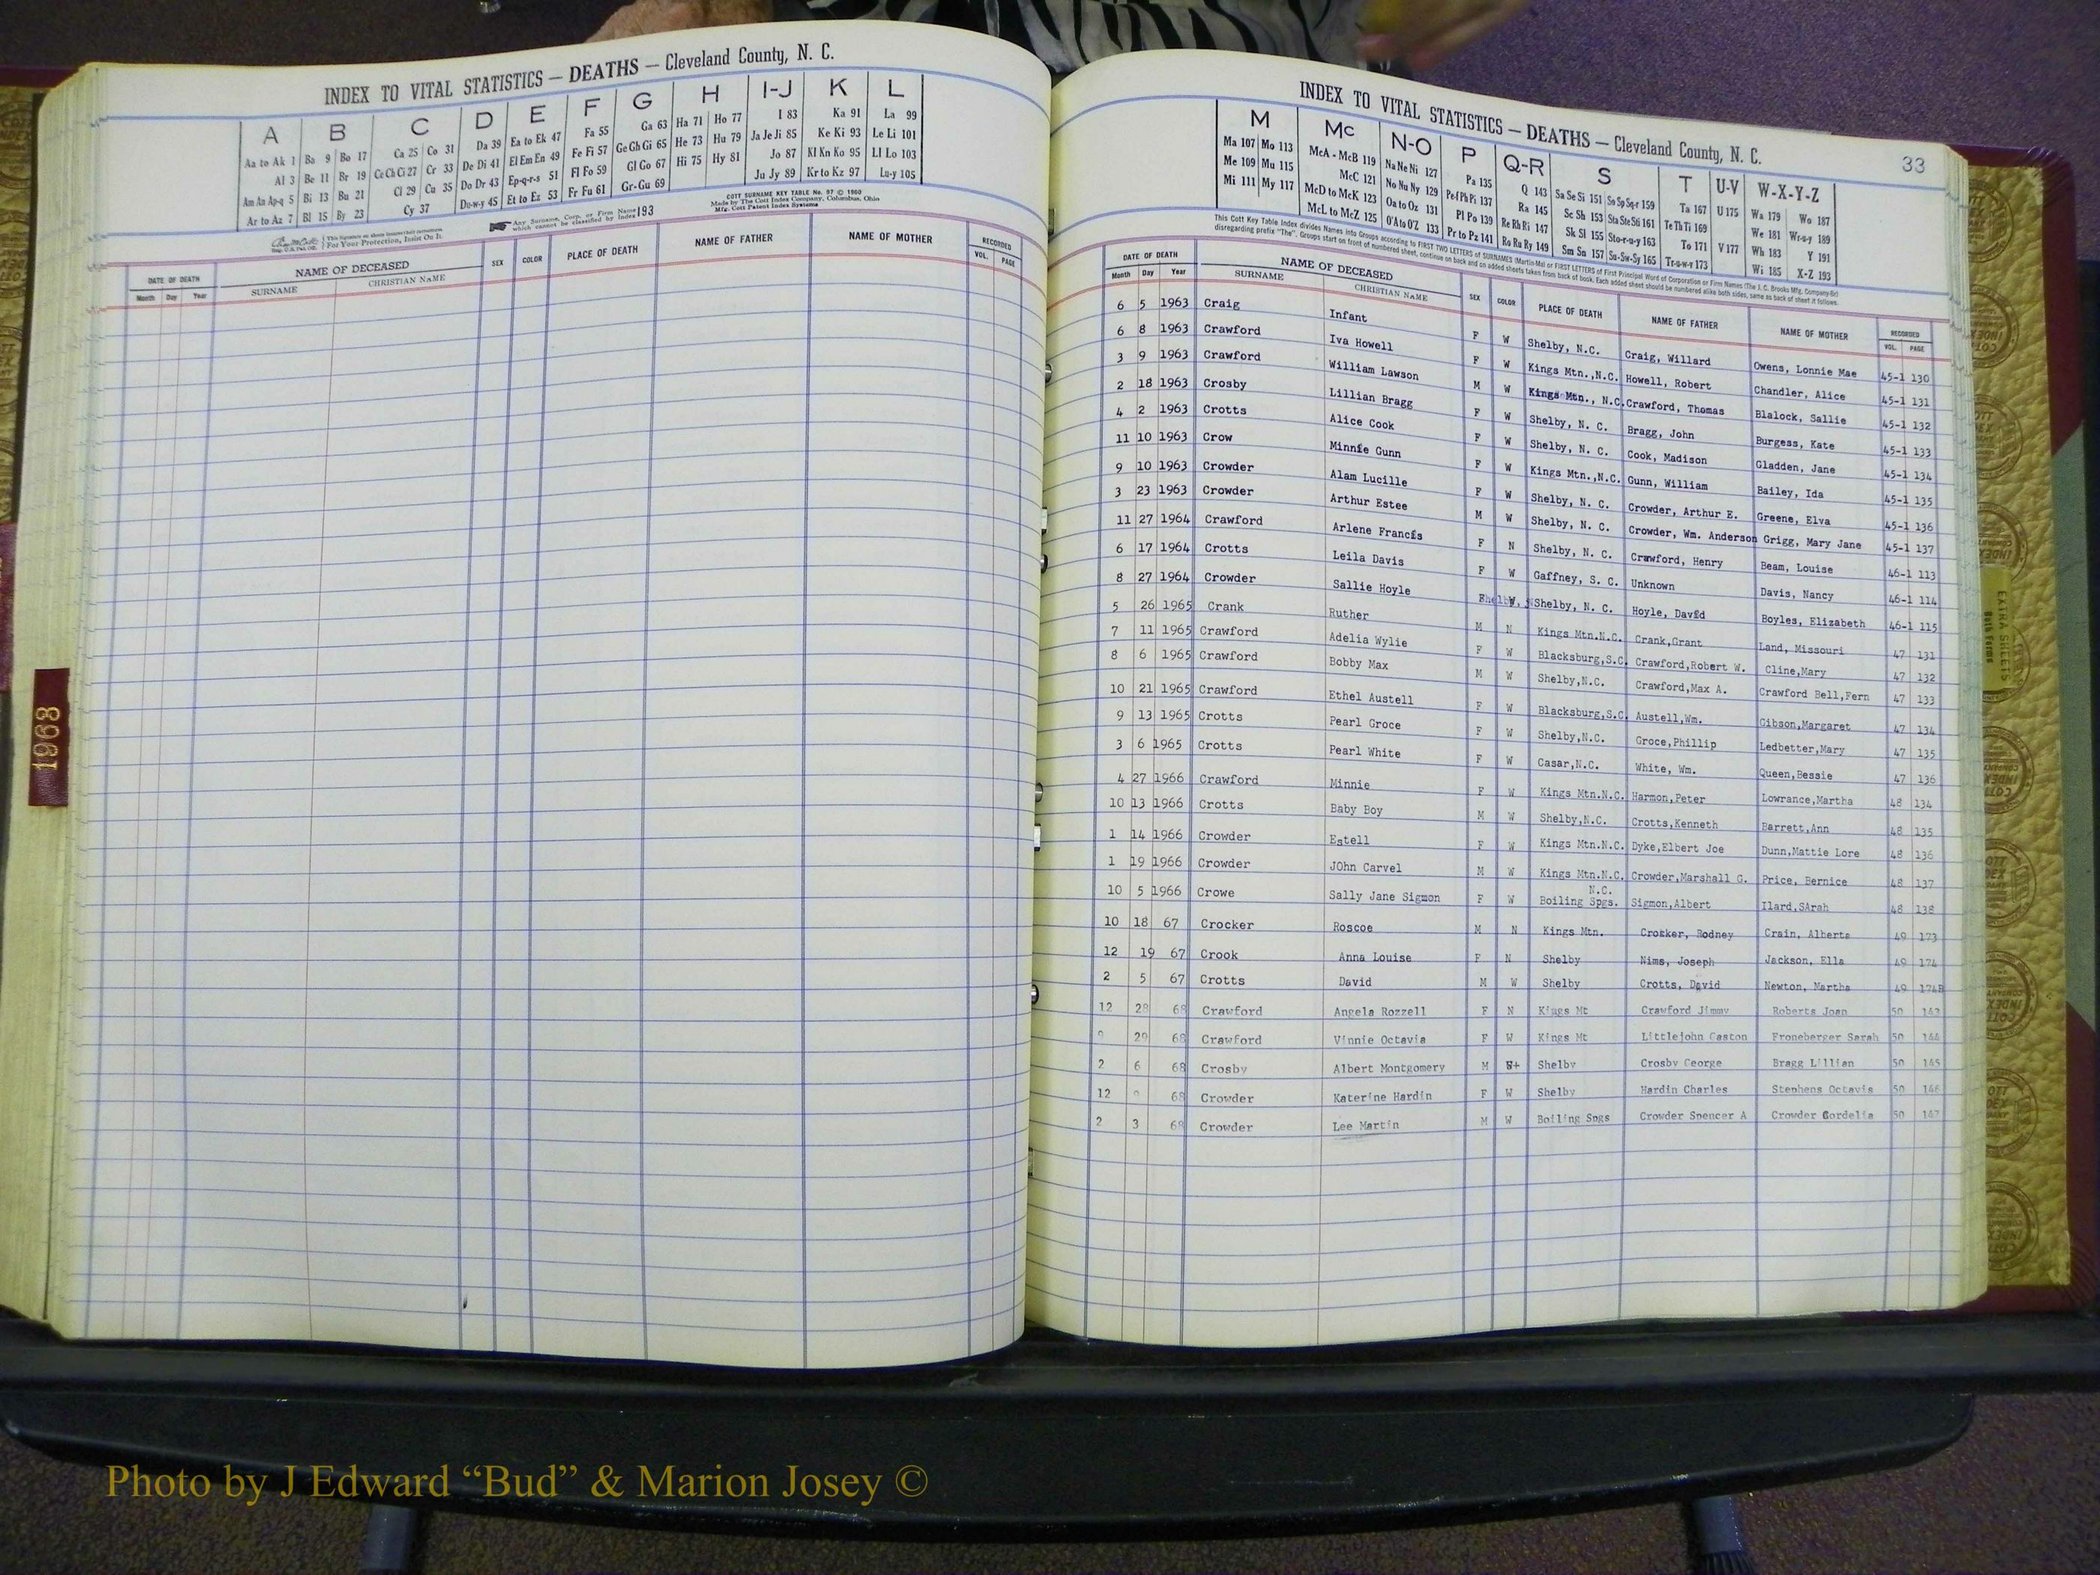 INDEX TO VITAL STATISTICS — DEATHS — Cleveland County, N. C.
A B C D E F G H I-J K L
Aa to Ak 1 Ba 9 Bo 17 Ca 25 Co 31 Da 39 Ea to Ek 47 Fa 55 Ga 63 Ha 71 Ho 77 I 83 Ka 91 La 99
Al 3 Be 11 Br 19 Ce Ch Ci 27 Cr 33 De Di 41 El Em En 49 Fe Fi 57 Ge Gh Gi 65 He 73 Hu 79 Ja Je Ji 85 Ke Ki 93 Le Li 101
Am An Ap-q 5 Bi 13 Bu 21 Cl 29 Cu 35 Do Dr 43 Ep-q-r-s 51 Fl Fo 59 Gl Go 67 Hi 75 Hy 81 Jo 87 Kl Kn Ko 95 Ll Lo 103
Ar to Az 7 Bl 15 By 23 Cy 37 Du-w-y 45 Et to Ez 53 Fr Fu 61 Gr-Gu 69 Ju Jy 89 Kr to Kz 97 Lu-y 105
COTT SURNAME KEY TABLE No. 97 © 1960
Made by The Cott Index Company, Columbus, Ohio
Mfg. Cott Patent Index Systems
For Your Protection, Insist On It.
Any Surname, Corp. or Firm Name which cannot be classified by Index 193
DATE OF DEATH NAME OF DECEASED SEX COLOR PLACE OF DEATH NAME OF FATHER NAME OF MOTHER RECORDED
Month Day Year SURNAME CHRISTIAN NAME VOL. PAGE
1968
INDEX TO VITAL STATISTICS — DEATHS — Cleveland County, N. C. 33
M Mc N-O P Q-R S T U-V W-X-Y-Z
Ma 107 Mo 113 McA - McB 119 Na Ne Ni 127 Pa 135 Q 143 Sa Se Si 151 Sn Sp Sq-r 159 Ta 167 U 175 Wa 179 Wo 187
Me 109 Mu 115 McC 121 No Nu Ny 129 Pe Ph Pi 137 Ra 145 Sc Sh 153 Sta Ste Sti 161 Te Th Ti 169 We 181 Wr-u-y 189
Mi 111 My 117 McD to McK 123 Oa to Oz 131 Pl Po 139 Re Rh Ri 147 Sk Sl 155 Sto-r-u-y 163 To 171 V 177 Wh 183 Y 191
McL to McZ 125 O'A to O'Z 133 Pr to Pz 141 Ro Ru Ry 149 Sm Sn 157 Su-Sw-Sy 165 Tr-u-w-y 173 Wi 185 X-Z 193
This Cott Key Table Index divides Names into Groups according to FIRST TWO LETTERS of SURNAMES (Martin-Ma) or FIRST LETTERS of First Principal Word of Corporation or Firm Names (The J. C. Brooks Mfg. Company-Br)
disregarding prefix "The". Groups start on front of numbered sheet, continue on back and on added sheets taken from back of book. Each added sheet should be numbered alike both sides, same as back of sheet it follows.
DATE OF DEATH NAME OF DECEASED SEX COLOR PLACE OF DEATH NAME OF FATHER NAME OF MOTHER RECORDED
Month Day Year SURNAME CHRISTIAN NAME VOL. PAGE
6 5 1963 Craig Infant F W Shelby, N.C. Craig, Willard Owens, Lonnie Mae 45-1 130
6 8 1963 Crawford Iva Howell F W Kings Mtn.,N.C. Howell, Robert Chandler, Alice 45-1 131
3 9 1963 Crawford William Lawson M W Kings Mtn., N.C. Crawford, Thomas Blalock, Sallie 45-1 132
2 18 1963 Crosby Lillian Bragg F W Shelby, N. C. Bragg, John Burgess, Kate 45-1 133
4 2 1963 Crotts Alice Cook F W Shelby, N. C. Cook, Madison Gladden, Jane 45-1 134
11 10 1963 Crow Minnie Gunn F W Kings Mtn.,N.C. Gunn, William Bailey, Ida 45-1 135
9 10 1963 Crowder Alam Lucille F W Shelby, N. C. Crowder, Arthur E. Greene, Elva 45-1 136
3 23 1963 Crowder Arthur Estee M W Shelby, N. C. Crowder, Wm. Anderson Grigg, Mary Jane 45-1 137
11 27 1964 Crawford Arlene Francis F N Shelby, N. C. Crawford, Henry Beam, Louise 46-1 113
6 17 1964 Crotts Leila Davis F W Gaffney, S. C. Unknown Davis, Nancy 46-1 114
8 27 1964 Crowder Sallie Hoyle F W Shelby, N. C. Hoyle, David Boyles, Elizabeth 46-1 115
5 26 1965 Crank Ruther M N Kings Mtn.N.C. Crank,Grant Land, Missouri 47 131
7 11 1965 Crawford Adelia Wylie F W Blacksburg,S.C. Crawford,Robert W. Cline,Mary 47 132
8 6 1965 Crawford Bobby Max M W Shelby,N.C. Crawford,Max A. Crawford Bell,Fern 47 133
10 21 1965 Crawford Ethel Austell F W Blacksburg,S.C. Austell,Wm. Gibson,Margaret 47 134
9 13 1965 Crotts Pearl Groce F W Shelby,N.C. Groce,Phillip Ledbetter,Mary 47 135
3 6 1965 Crotts Pearl White F W Casar,N.C. White, Wm. Queen,Bessie 47 136
4 27 1966 Crawford Minnie F W Kings Mtn.N.C. Harmon,Peter Lowrance,Martha 48 134
10 13 1966 Crotts Baby Boy M W Shelby,N.C. Crotts,Kenneth Barrett,Ann 48 135
1 14 1966 Crowder Estell F W Kings Mtn.N.C. Dyke,Elbert Joe Dunn,Mattie Lore 48 136
1 19 1966 Crowder JOhn Carvel M W Kings Mtn.N.C. Crowder,Marshall G. Price, Bernice 48 137
10 5 1966 Crowe Sally Jane Sigmon F W Boiling Spgs. N.C. Sigmon,Albert Ilard,SArah 48 138
10 18 67 Crocker Roscoe M N Kings Mtn. Crocker, Rodney Crain, Alberta 49 173
12 19 67 Crook Anna Louise F N Shelby Nims, Joseph Jackson, Ella 49 174
2 5 67 Crotts David M W Shelby Crotts, David Newton, Martha 49 174B
12 28 68 Crawford Angela Rozzell F N Kings Mt Crawford Jimmy Roberts Joan 50 143
9 29 68 Crawford Vinnie Octavia F W Kings Mt Littlejohn Gaston Froneberger Sarah 50 144
2 6 68 Crosby Albert Montgomery M Shelby Crosby George Bragg Lillian 50 145
12 9 68 Crowder Katerine Hardin F W Shelby Hardin Charles Stephens Octavis 50 146
2 3 68 Crowder Lee Martin M W Boiling Spgs Crowder Spencer A Crowder Cordelia 50 147
EXTRA SHEETS
Photo by J Edward “Bud” & Marion Josey ©